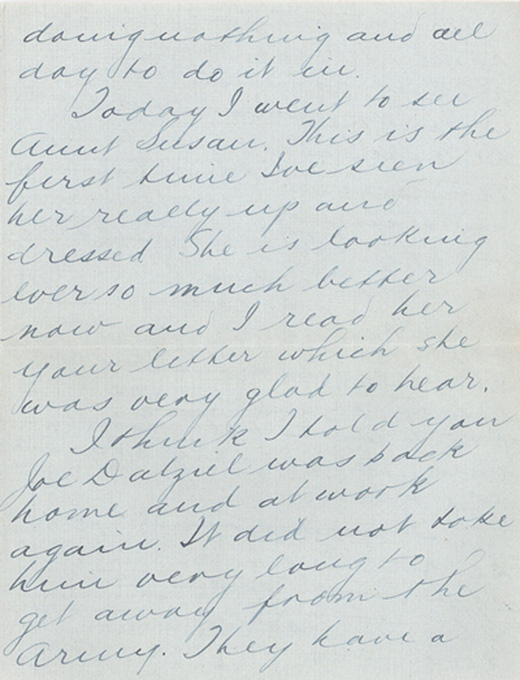 doing nothing and all
day to do it in.
Today I went to see
Aunt Susan. This is the
first time I've seen
her really up and
dressed She is looking
ever so much better
now and I read her
your letter which she
was very glad to hear.
I think I told you
Joe Dalziel was back
home and at work
again. It did not take
him very long to
get away from the
Army. They have a